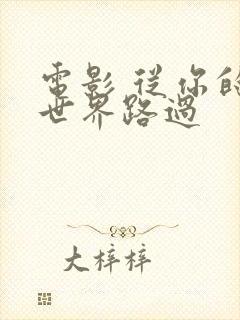 電影 從你的
世界路過
大梓梓